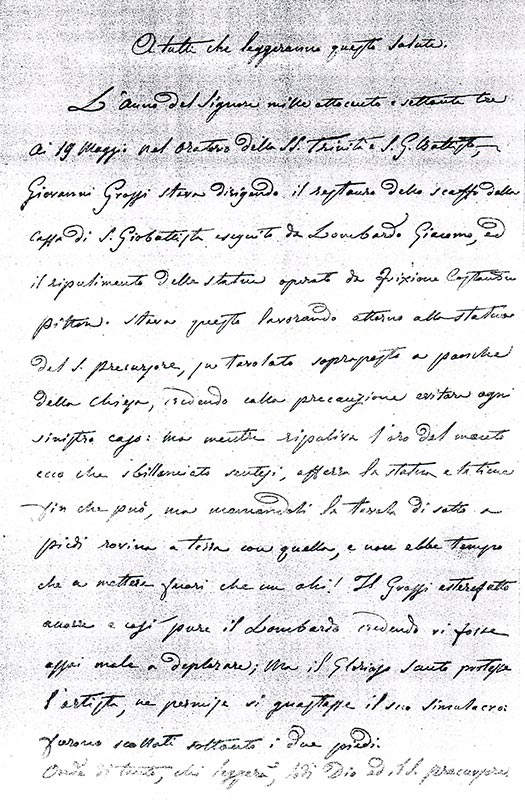 A tutti che leggeranno questo salute.
L'anno del Signore mille ottocento e settanta tre
ai 19 Maggio nel oratorio della SS. Trinità e S. G. Battista,
Giovanni Grassi stava dirigendo il restauro dello scaffo della
cassa di S. Giobattista eseguito da Lombardo Giacomo, ed
il ripulimento della statua operato da Frixione Costantino
pittore. Stava questo lavorando attorno alla statua
del S. precursore, su tavolato soprapposto a panche
della chiesa, credendo colla precauzione evitare ogni
sinistro caso: ma mentre ripuliva l'oro del manto
ecco che sbillanciato sentesi, afferra la statua e la tiene
fin che può, ma mancandoli la tavola di sotto a
piedi rovina a terra con quella, e non ebbe tempo
che a mettere fuori che un ahi! Il Grassi esterefatto
accorre e così pure il Lombardo credendo vi fosse
assai male a deplorare; Ma il Glorioso Santo protesse
l'artista, ne permise si guastasse il suo simulacro:
furono scollati soltanto i due piedi.
Onde di tutto, chi leggerà, lodi Dio ed il S. precursore.